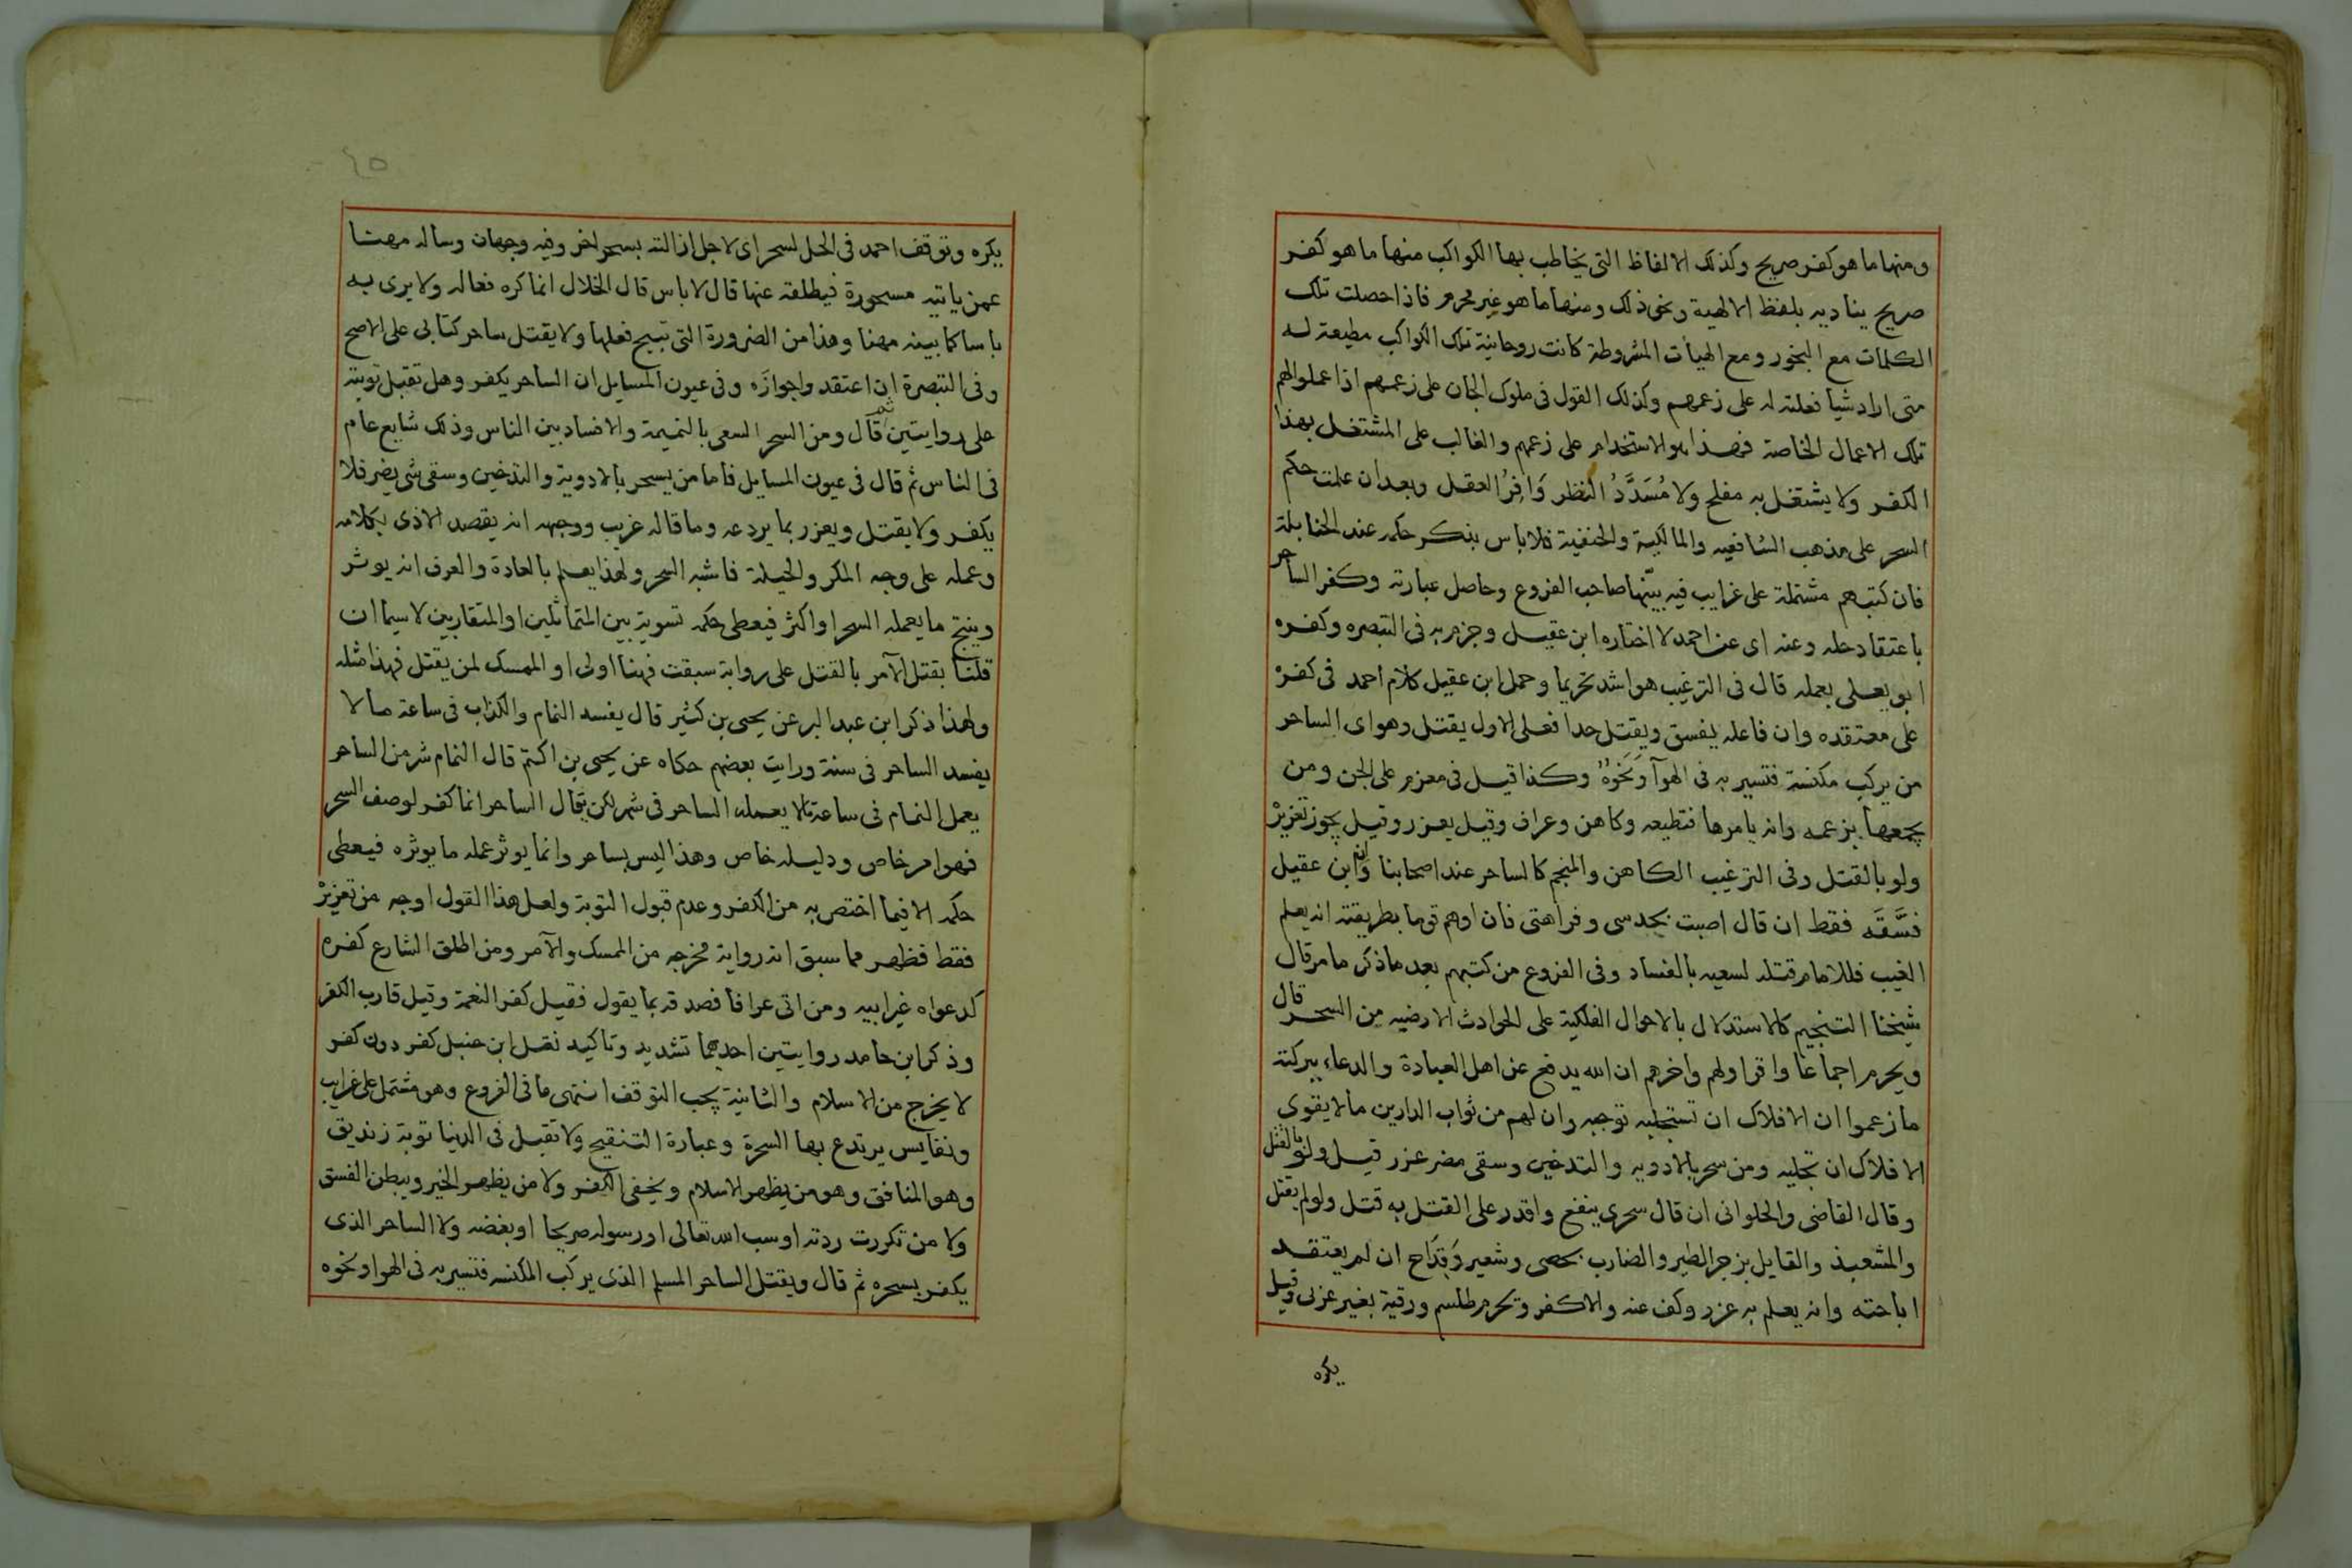 ومنها ما هو كفر صريح وكذلك الالفاظ التى يخاطب بها الكواكب منها ما هو كفر
صريح يناديه بلفظ الالهية ونحو ذلك ومنها ما هو غير محرم فاذا حصلت تلك
الكلمات مع البخور ومع الهيأت المشروطة كانت روحانية تلك الكواكب مطيعة له
متى اراد شيأ فعلته له على زعمهم وكذلك القول فى ملوك الجان على زعمهم اذا عملوا لهم
تلك الاعمال الخاصة فهذا هو الاستخدام على زعمهم والغالب على المشتغل بهذا
الكفر ولا يشتغل به مفلح ولا مُسَدَّدُ النظر وَافِرُ العقل وبعد ان علمت حكم
السحر على مذهب الشافعيه والمالكية والحنفية فلا باس بذكر حكمه عند الحنابلة
فان كتبهم مشتملة على غرايب فيه بيّنها صاحب الفروع وحاصل عبارته وكفر الساحر
باعتقاد حله وعنه اى عن احمد لا اختاره ابن عقيل وجزم به فى التبصره وكفره
ابو يعلى بعمله قال فى الترغيب هو اشد تحريما وحمل ابن عقيل كلام احمد فى كفره
على معتقده وان فاعله يفسق ويقتل حدا فعلى الاول يقتل وهو اى الساحر
من يركب مكنسة فتسير به فى الهوآ وَنَحْوَهُ وكذا قيل فى معزم على الجن ومن
يجمعها بزعمه وانه يامرها فتطيعه وكاهن وعراف وقيل يعزر وقيل يجوز تعزيره
ولو بالقتل وفى الترغيب الكاهن والمنجم كالساحر عند اصحابنا وان ابن عقيل
فسَّقَه فقط ان قال اصبت بحدسى وفراهتى فان اوهم قوما بطريقته انه يعلم
الغيب فللامام قتله لسعيه بالفساد وفى الفروع من كتبهم بعد ما ذكر ما مر قال
شيخنا التنجيم كالاستدلال بالاحوال الفلكية على الحوادث الارضيه من السحر قال
ويحرم اجماعا واقر اولهم واخرهم ان الله يدفع عن اهل العبادة والدعاء ببركته
ما زعموا ان الافلاك ان تستجلبه توجبه وان لهم من ثواب الدارين ما لا يقوى
الافلاك ان تجلبه ومن سحر بالادويه والتدخين وسقى مضر عزر قيل ولو بالقتل
وقال القاضى والحلوانى ان قال سحرى ينفع واقدر على القتل به قتل ولو لم يقتل
والمشعبذ والقايل بزجر الطير والضارب بحصى وشعير وَقِدَاح ان لم يعتقد
اباحته وانه يعلم به عزر وكف عنه والا كفر وتحرم طلسم ورقية بغير عربى وقيل
يكره
٤٥
يكره وتوقف احمد فى الحل لسحر اى لاجل ازالته بسحر اخر وفيه وجهان وساله مهنا
عمن ياتيه مسحورة فيطلقه عنها قال لا باس قال الخلال انما كره فعاله ولا يرى به
باسا كما بينه مهنا وهذا من الضرورة التى تبيح فعلها ولا يقتل ساحر كتابى على الاصح
وفى التبصرة ان اعتقد واجوازَه وفى عيون المسايل ان الساحر يكفر وهل تقبل توبته
على روايتين ثم قال ومن السحر السعى بالنميمة والافساد بين الناس وذلك شايع عام
فى الناس ثم قال فى عيون المسايل فاما من يسحر بالادوية والتدخين وسقى شى يضر فلا
يكفر ولا يقتل ويعزر بما يردعه وما قاله غريب ووجهه انه يقصد الاذى بكلامه
وعمله على وجه المكر والحيلة فاشبه السحر ولهذا يعلم بالعادة والعرف انه يوثر
وينتج ما يعمله السحر او اكثر فيعطى حكمه تسوية بين المتماثلين او المتقاربين لا سيما ان
قلنا بقتل الآمر بالقتل على رواية سبقت فهنا اولى او الممسك لمن يقتل فهذا مثله
ولهذا ذكر ابن عبد البر عن يحيى بن كثير قال يفسد النمام والكذاب فى ساعة ما لا
يفسد الساحر فى سنة ورايت بعضهم حكاه عن يحيى بن اكثم قال النمام شر من الساحر
يعمل النمام فى ساعة ما لا يعمله الساحر فى شهر لكن يقال الساحر انما كفر لوصف السحر
فهو امر خاص ودليله خاص وهذا ليس بساحر وانما يوثر عمله ما يوثره فيعطى
حكمه الا فيما اختص به من الكفر وعدم قبول التوبة ولعل هذا القول اوجه من تعزيره
فقط فظهر مما سبق انه رواية مخرجه من الممسك والآمر ومن اطلق الشارع كفره
كدعواه غير ابيه ومن اتى عرافا فصدقه بما يقول فقيل كفر النعمة وقيل قارب الكفر
وذكر ابن حامد روايتين احدهما تشديد وتاكيد نقل ابن حنبل كفر دون كفر
لا يخرج من الاسلام والثانية يجب التوقف انتهى ما فى الفروع وهو مشتمل على غرايب
ونفايس يرتدع بها السحرة وعبارة التنقيح ولا تقبل فى الدنيا توبة زنديق
وهو المنافق وهو من يظهر الاسلام ويخفى الكفر ولا من يظهر الخير ويبطن الفسق
ولا من تكررت ردته او سب الله تعالى او رسوله صريحا او بغضه ولا الساحر الذى
يكفر بسحره ثم قال ويقتل الساحر المسلم الذى يركب المكنسه فتسير به فى الهوا ونحوه